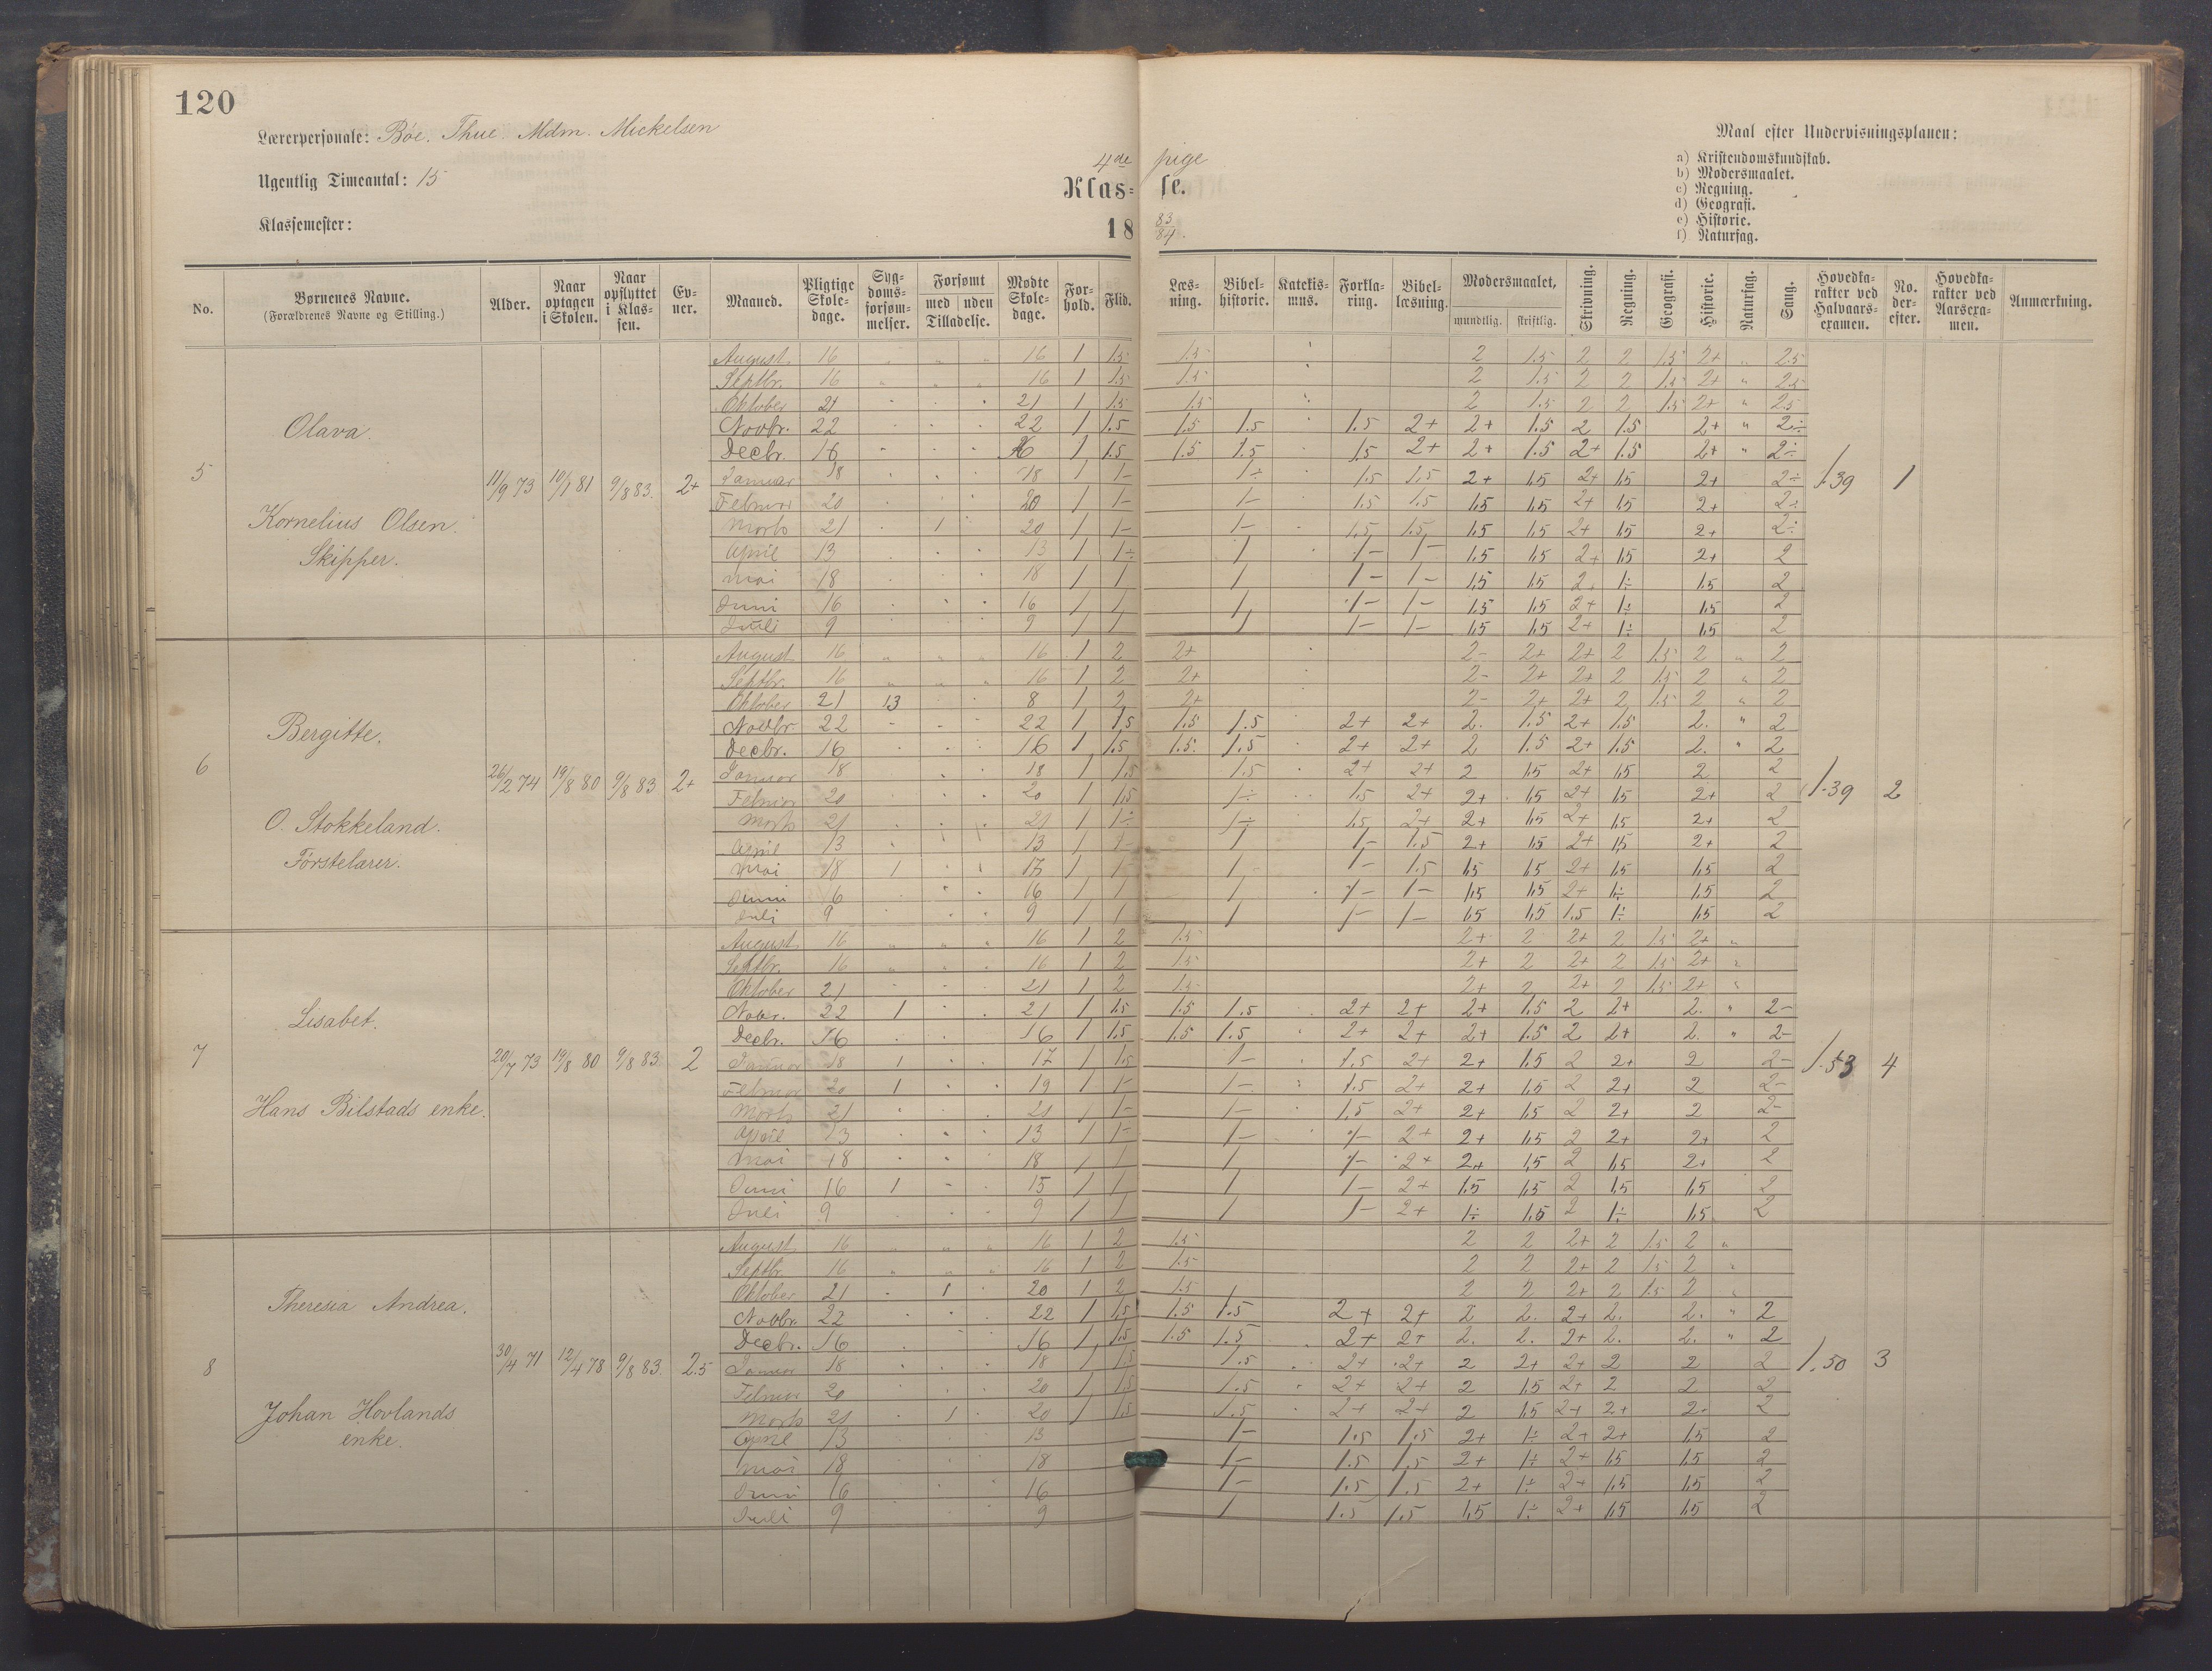 120
Lærerpersonale: Bøe. Thue. Mdm. Mickelsen
Ugentlig Timeantal: 15
Klassemester:
4de pige
Klasse.
18 83/84.
Maal efter Undervisningsplanen:
a) Kristendomskundskab.
b) Modersmaalet.
c) Regning.
d) Geografi.
e) Historie.
f) Naturfag.
No. Børnenes Navne. (Forældrenes Navne og Stilling.) Alder. Naar optagen i Skolen. Naar opflyttet i Klassen. Evner. Maaned. Pligtige Skoledage. Sygdomsforsømmelser. Forsømt med uden Tilladelse. Mødte Skoledage. Forhold. Flid. Læsning. Bibelhistorie. Katekismus. Forklaring. Bibellæsning. Modersmaalet, mundtlig. skriftlig. Skrivning. Regning. Geografi. Historie. Naturfag. Sang. Hovedkarakter ved Halvaarsexamen. No. derefter. Hovedkarakter ved Aarsexamen. Anmærkning.
5 Olava. Kornelius Olsen. Skipper. 11/9 73 10/1 81 9/8 83. 2+ 1.39 1
August 16 16 1 1.5 1.5 2 1.5 2 2 1.5 2+ " 2.5
Septbr. 16 " " " 16 1 1.5 1.5 2 1.5 2 2 1.5 2+ " 2.5
Oktober 21 21 1 1.5 1.5 2 1.5 2 2 1.5 2+ " 2.5
Novbr. 22 22 1 1.5 1.5 1.5 1.5 2+ 2+ 1.5 2 1.5 2+ " 2÷
Decbr. 16 16 1 1.5 1.5 1.5 1.5 2+ 2+ 1.5 2+ 1.5 2+ " 2÷
Januar 18 18 1 1- 1÷ 1.5 1.5 2+ 1.5 2+ 1.5 2+ 2÷
Februar 20 20 1 1- 1- 1.5 1.5 1.5 1.5 2+ 1.5 2+ 2÷
Marts 21 1 20 1 1- 1- 1.5 1.5 1.5 1.5 2+ 1.5 2+ 2÷
April 13 13 1 1÷ 1 1- 1- 1.5 1.5 2+ 1.5 2+ 2
Mai 18 18 1 1 1 1- 1- 1.5 1.5 2. 1÷ 1.5 2
Juni 16 16 1 1 1 1- 1- 1.5 1.5 2+ 1÷ 1.5 2
Juli 9 9 1 1 1 1- 1- 1.5 1.5 2+ 1÷ 1.5 2
6 Bergitte. O. Stokkeland. Førstelærer. 26/2 74 19/8 80 9/8 83 2+ 1.39 2
August 16 " " " 16 1 2 2+ 2- 2+ 2+ 2 1.5 2 " 2
Septbr. 16 " " " 16 1 2 2+ 2- 2+ 2+ 2 1.5 2 " 2
Oktober 21 13 8 1 2 2+ 2- 2+ 2+ 2 1.5 2 " 2
Novbr. 22 22 1 1.5 1.5 1.5 2+ 2+ 2. 1.5 2+ 1.5 2. " 2
Decbr. 16 16 1 1.5 1.5 1.5 2+ 2+ 2 1.5 2+ 1.5 2. " 2
Januar 18 18 1 1.5 1.5 2+ 2+ 2 1.5 2+ 1.5 2 2
Februar 20 20 1 1.5 1÷ 1.5 2+ 2+ 1.5 2+ 1.5 2+ 2
Marts 21 21 1 1÷ 1÷ 1.5 2+ 2+ 1.5 2+ 1.5 2+ 2
April 13 13 1 1- 1 1- 1.5 2+ 1.5 2+ 1.5 2+ 2
Mai 18 1 17 1 1- 1- 1- 1.5 1.5 1.5 2+ 1.5 1.5 2
Juni 16 16 1 1 1 1- 1- 1.5 1.5 2+ 1÷ 1.5 2
Juli 9 9 1 1 1 1- 1- 1.5 1.5 1.5 1÷ 1.5 2
7 Lisabet. Hans Bilstads enke. 20/7 73 19/8 80 9/8 83 2 1.53 4
August 16 " " " 16 1 2 1.5 2+ 2 2+ 2 1.5 2+ "
Septbr. 16 " " " 16 1 2 1.5 2+ 2 2+ 2 1.5 2+ "
Oktober 21 21 1 2 1.5 2+ 2 2+ 2 1.5 2+ "
Novbr. 22 1 21 1 1.5 1.5 1.5 2+ 2+ 2+ 1.5 2 2+ 2. " 2-
Decbr. 16 16 1 1.5 1.5 1.5 2+ 2+ 2+ 1.5 2 2+ 2. " 2-
Januar 18 1 17 1 1.5 1- 1.5 2+ 2+ 1.5 2 2+ 2 2-
Februar 20 1 19 1 1- 1- 1.5 2+ 2+ 1.5 2 2+ 2 2-
Marts 21 21 1 1- 1- 1.5 2+ 2+ 1.5 2 2+ 2 2-
April 13 13 1 1- 1- 1- 2+ 2+ 1.5 2 2+ 2+ 2
Mai 18 18 1 1 1 1- 2+ 2+ 1.5 2 1.5 2+ 2
Juni 16 1 15 1 1 1 1- 2+ 1.5 1.5 2 1.5 1.5 2
Juli 9 9 1 1 1 1- 2+ 1÷ 1.5 2 1÷ 1.5 2
8 Theresia Andrea. Johan Hovlands enke. 30/4 71 12/4 78 9/8 83. 2.5 1.50 3
August 16 " " " 16 1 2 1.5 2 2 2+ 2 1.5 2 "
Septbr. 16 " " " 16 1 2 1.5 2 2 2+ 2 1.5 2 "
Oktober 21 1 20 1 2 1.5 2 2 2+ 2 1.5 2 "
Novbr. 22 22 1 1.5 1.5 1.5 2+ 2+ 2 2. 2+ 2. 2. " 2
Decbr. 16 16 1 1.5 1.5 1.5 2+ 2+ 2. 2. 2+ 2. 2. " 2
Januar 18 18 1 1.5 1.5 2+ 2+ 2 2+ 2+ 2 2 2
Februar 20 20 1 1.5 1.5 2+ 2+ 2 1.5 2+ 2 2 2
Marts 21 1 20 1 1.5 1.5 2+ 2+ 2 1.5 2+ 2+ 2+ 2
April 13 13 1- 1.5 1.5 2+ 1÷ 2+ 2+ 1.5 2
Mai 18 18 1- 1.5 1.5 2+ 1÷ 2+ 1.5 1.5 2
Juni 16 16 1- 1.5 1.5 2+ 1÷ 2+ 1.5 1.5 2
Juli 9 9 1 1.5 1.5 1.5 1÷ 2+ 1.5 1.5 2